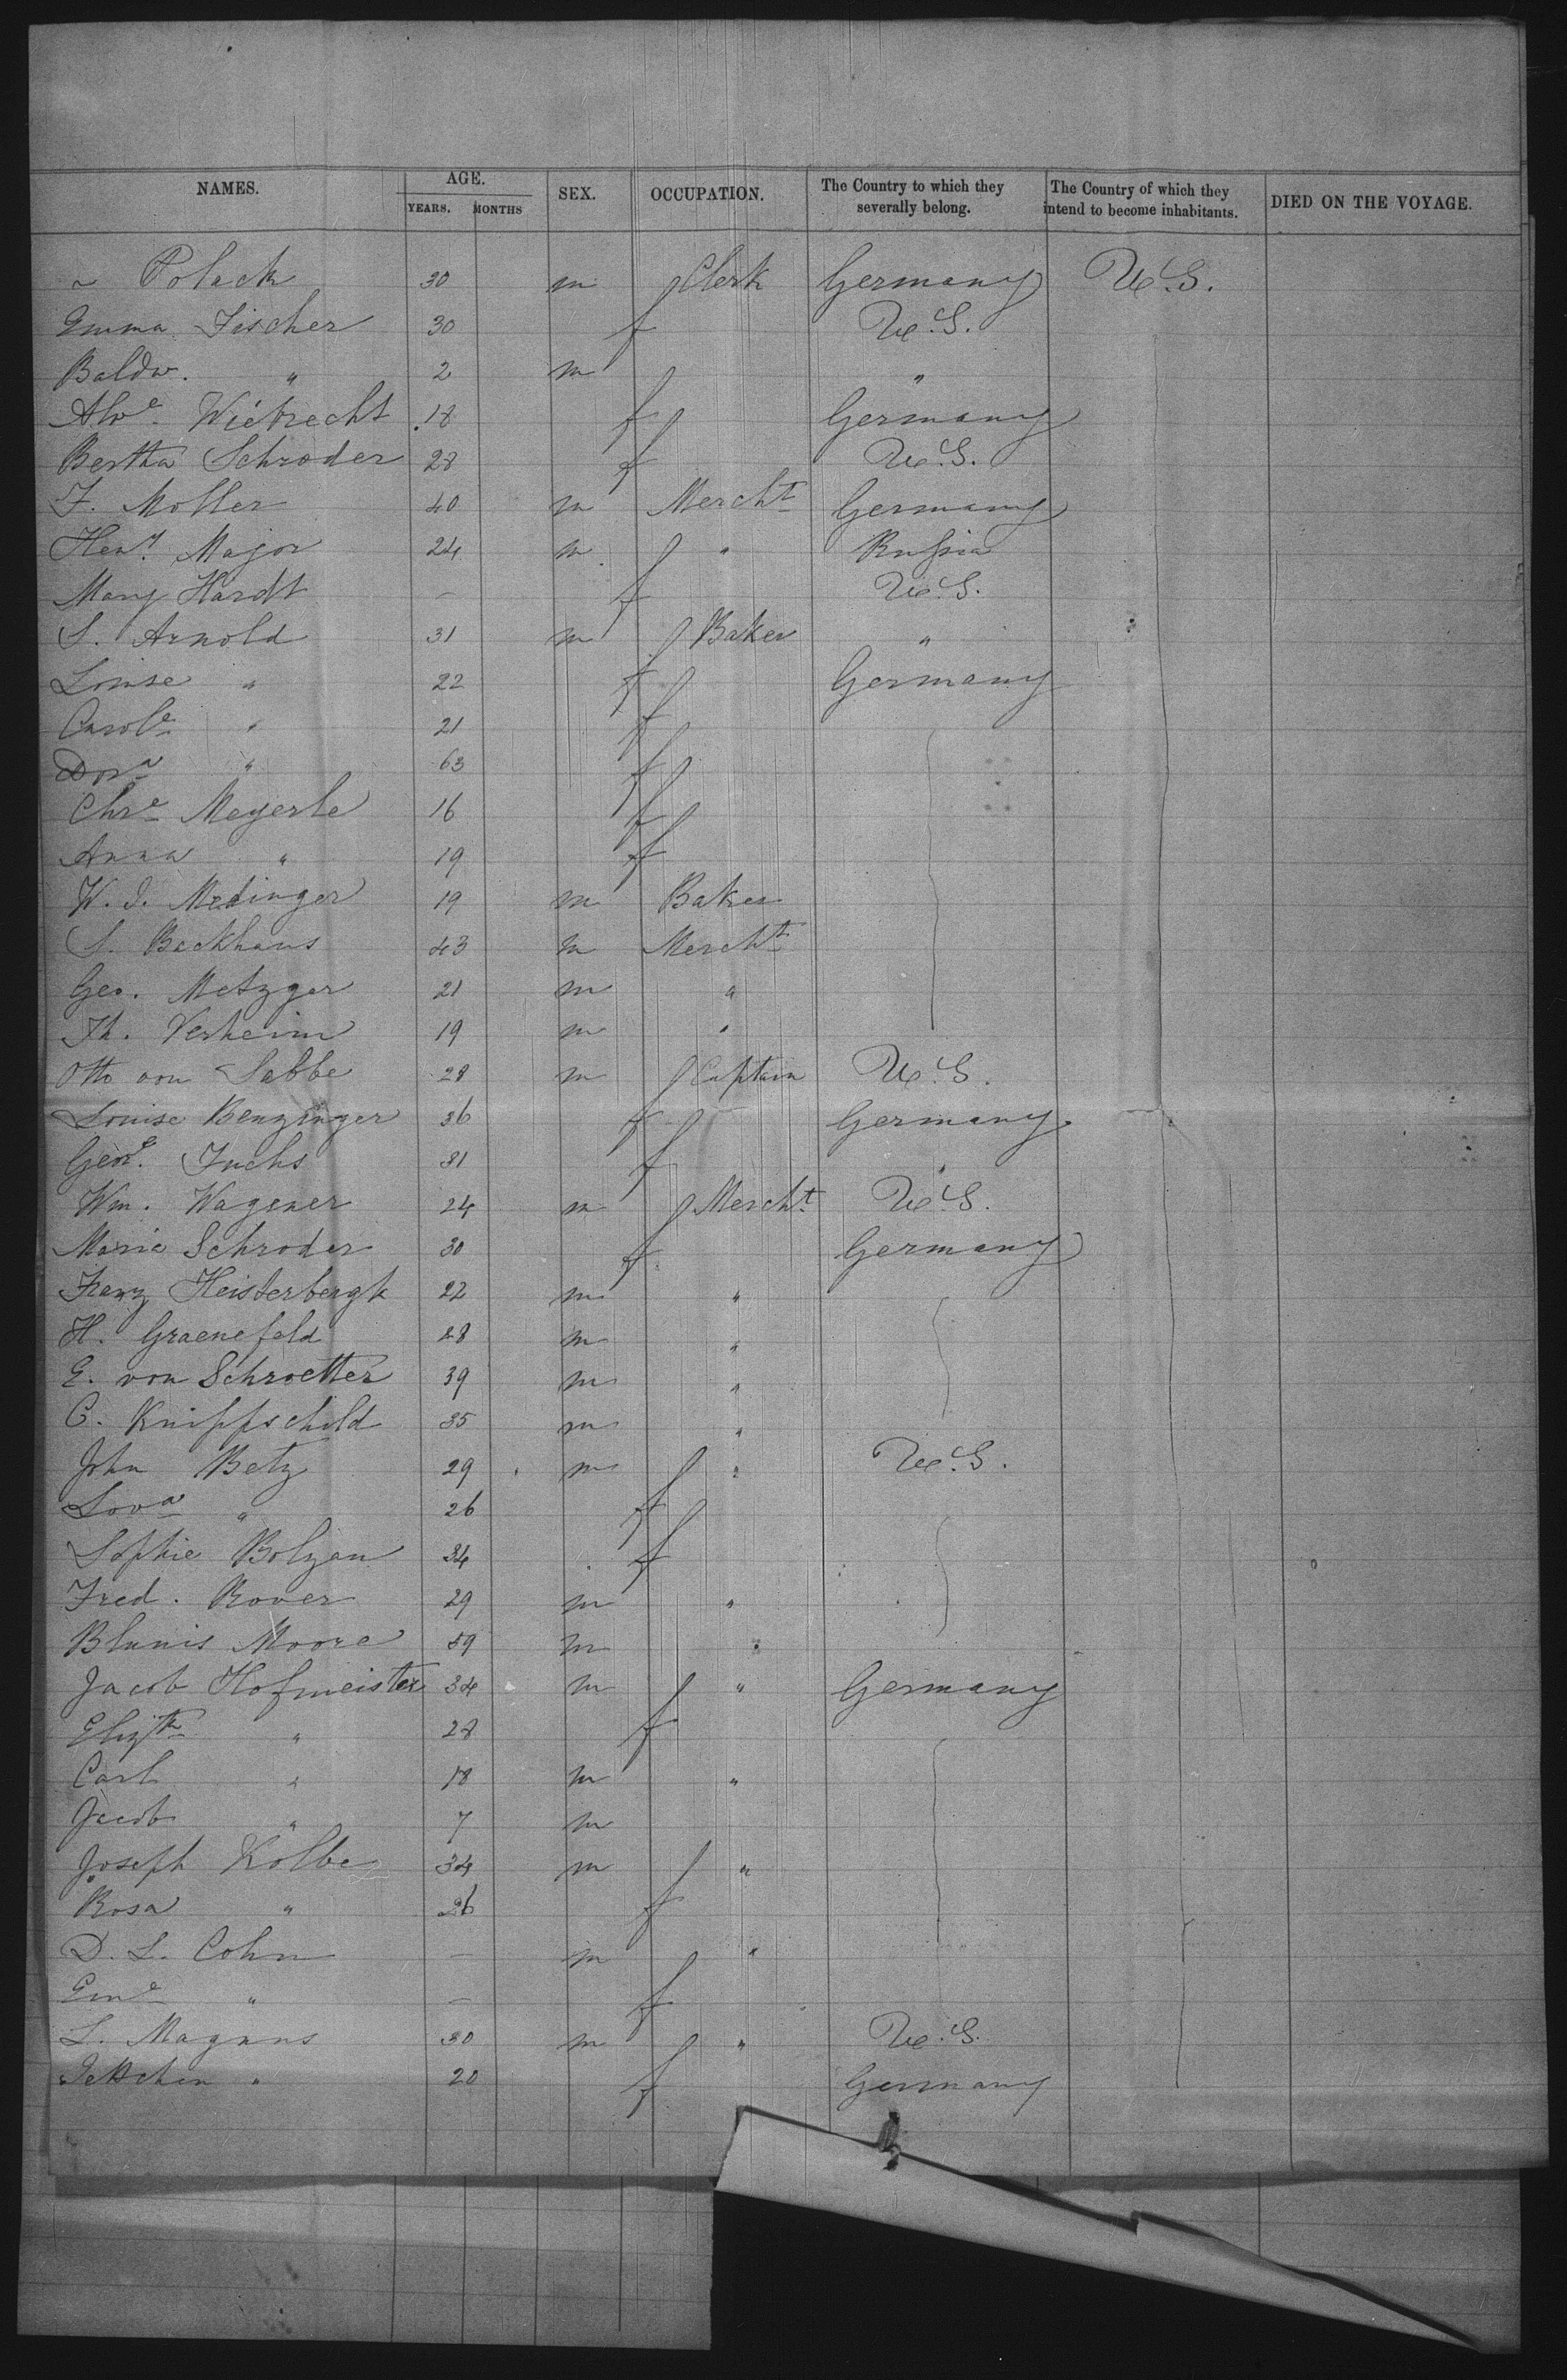 NAMES. AGE. SEX. OCCUPATION. The Country to which they severally belong. The Country of which they intend to become inhabitants. DIED ON THE VOYAGE.
YEARS. MONTHS
~ Polack 30 m Clerk Germany U.S.
Emma Fischer 30 f U.S.
Baldw. " 2 m "
Alve Wiebrecht 18 f Germany
Bertha Schroder 28 f U.S.
F. Moller 40 m Mercht Germany
Heny Major 24 m " Russia
Mary Hardt — f U.S.
S. Arnold 31 m Baker "
Louise " 22 f Germany
Carole " 21 f
Dora " 63 f
Chre Meyerle 16 f
Anna " 19 f
W. J. Medinger 19 m Baker
S. Backhaus 43 m Mercht
Geo. Metzger 21 m "
Th. Verheim 19 m "
Otto von Labbe 28 m Captain U.S.
Louise Benzinger 36 f Germany
Geoe. Fuchs 31 f "
Wm. Wagener 24 m Mercht U.S.
Marie Schroder 30 f Germany
Franz Heisterbergk 22 m "
H. Graenefeld 28 m "
E. von Schroetter 39 m "
C. Knippschild 35 m "
John Betz 29 m " U.S.
Lova " 26 f
Sophie Bolzau 34 f
Fred. Rover 29 m "
Moore 59 m "
Jacob Hofmeister 34 m " Germany
Elizth " 28 f
Carl " 18 m "
Jacob " 7 m
Joseph Kolbe 34 m "
Rosa " 26 f
D. L. Cohn — m "
Eme " — f
L. Magnus 30 m " U.S.
Jettchen " 20 f Germany